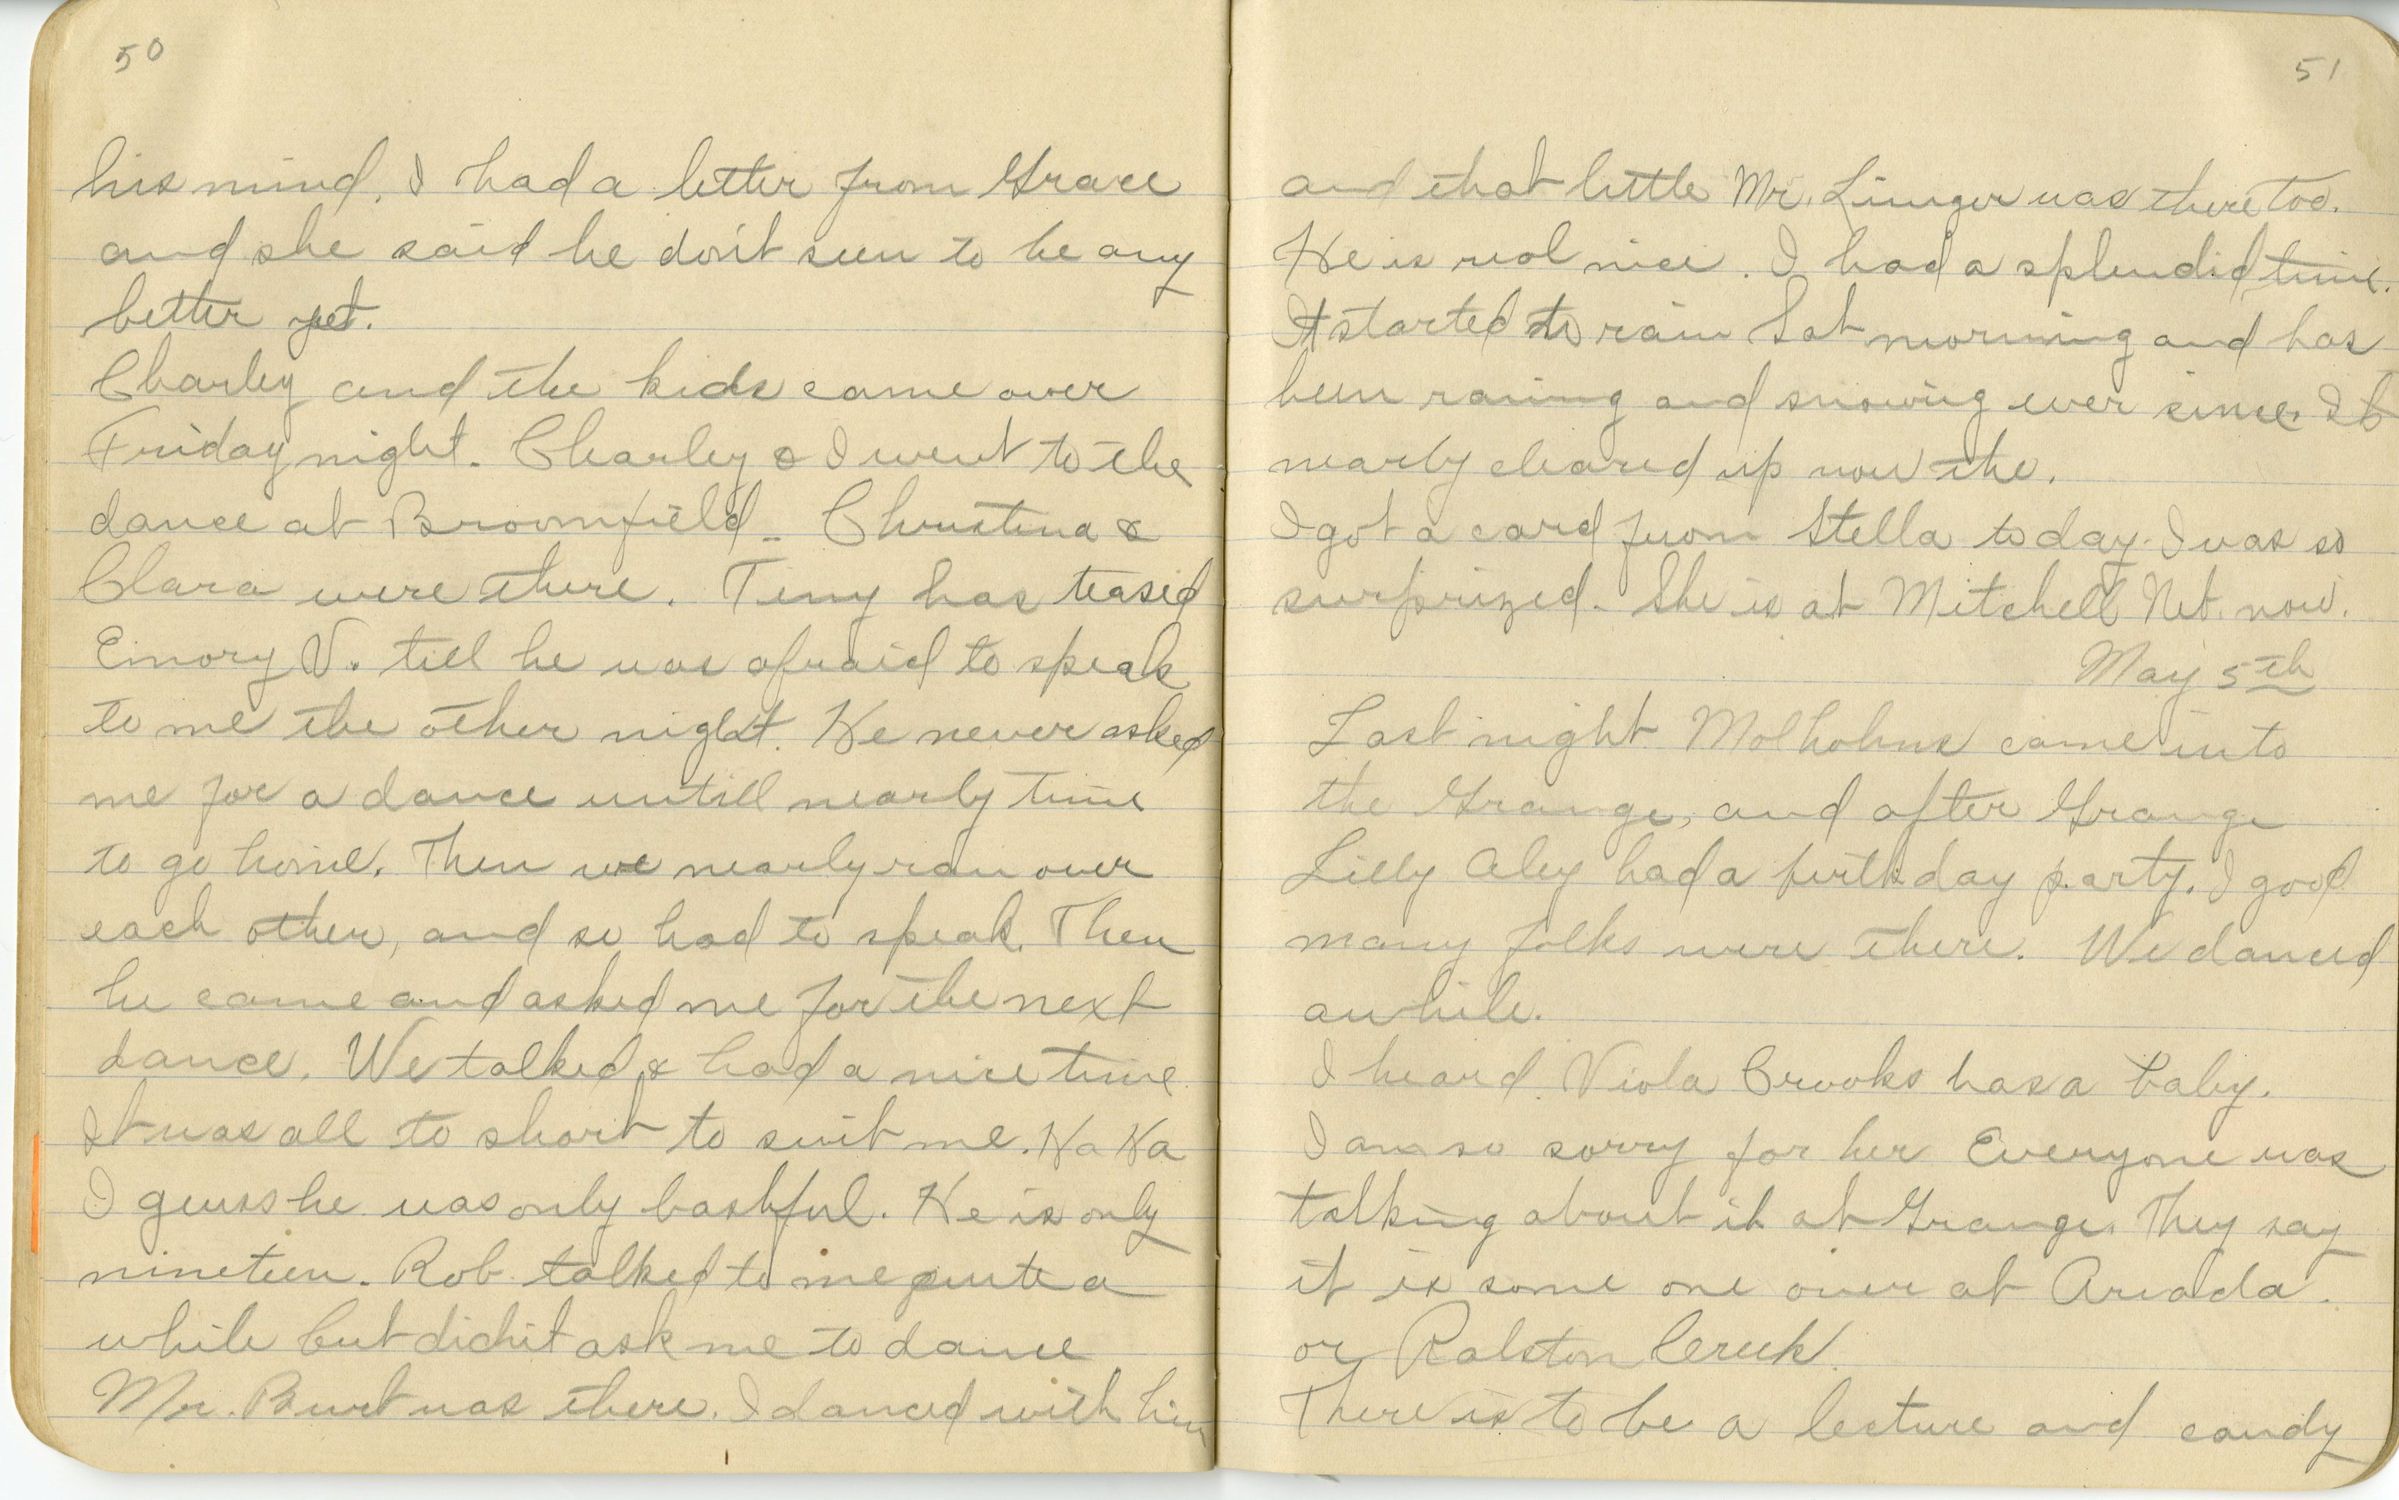 50
his mind. I had a letter from Grace
and she said he don't seem to be any
better yet.
Charley and the kids came over
Friday night. Charley & I went to the
dance at Broomfield. Christina &
Clara were there. Tiny has teased
Emory V. till he was afraid to speak
to me the other night. He never asked
me for a dance untill nearly time
to go home. Then we nearly ran over
each other, and so had to speak. Then
he came and asked me for the next
dance. We talked & had a nice time
It was all to short to suit me. Ha Ha
I guess he was only bashful. He is only
nineteen. Rob talked to me quite a
while but didn't ask me to dance
Mr. Burt was there. I danced with him
51
and that little Mr. Linger was there too.
He is real nice. I had a splendid time.
It started to rain Sat morning and has
been raining and snowing ever since. It
nearly cleared up now tho.
I got a card from Stella today. I was so
surprized. She is at Mitchell Neb. now.
May 5th
Last night Molholms came into
the Grange, and after Grange
Lilly Aley had a birthday party. I good
many folks were there. We danced
awhile.
I heard Viola Crooks has a baby.
I am so sorry for her Everyone was
talking about it at Grange. They say
it is some one over at Arvada.
or Ralston Creek.
There is to be a lecture and candy